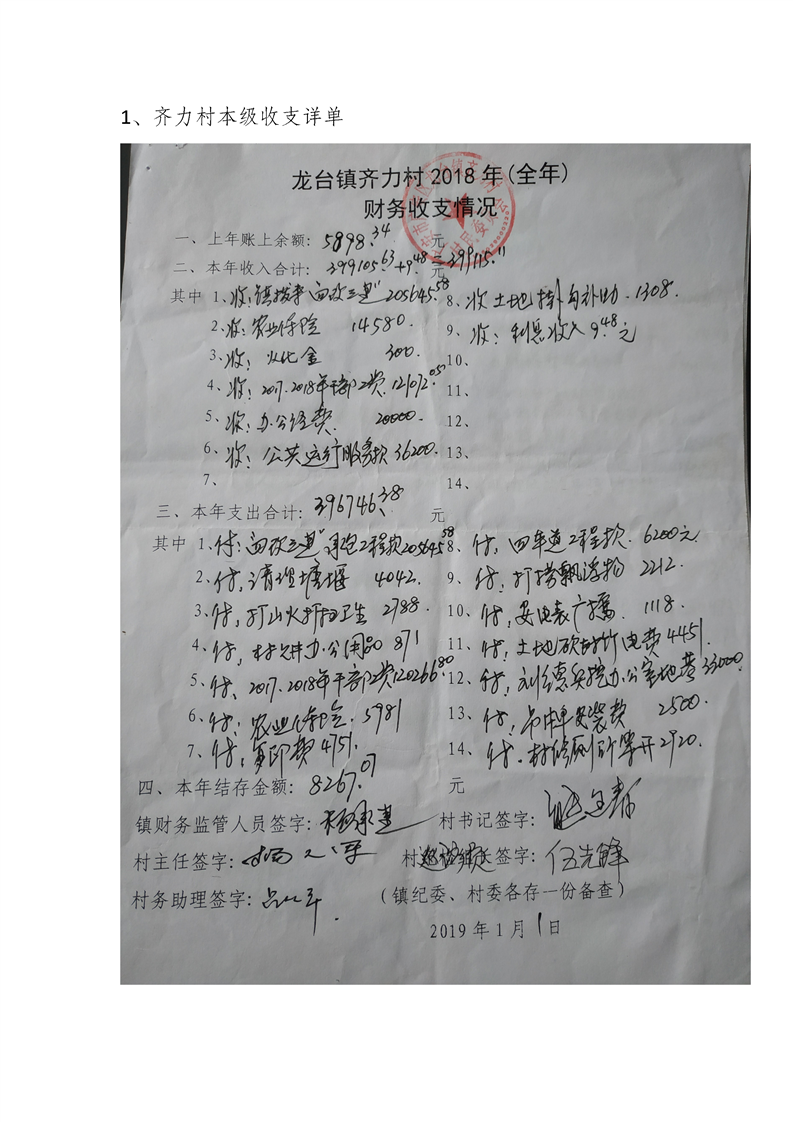 1、齐力村本级收支详单
龙台镇齐力村 2018 年(全年)
财务收支情况
一、上年账上余额: 5898.34 元
二、本年收入合计: 399105.63+9.48=399115.11 元
其中 1、收:镇拨来"面改三建"205645.58 8、收土地挂勾补助.1308.
2、收:农业保险 14580. 9、收:利息收入9.48元
3、收:火化金 300. 10、
4、收:2017.2018年干部工资.121072.05 11、
5、收:办公经费. 20000. 12、
6、收:公共运行服务款36200. 13、
7、 14、
三、本年支出合计: 396746.38 元
其中 1、付:"面改三建"工程款205645.58 8、付,四车道工程款. 6200元
2、付,清理塘堰 4042. 9、付:打捞飘浮物 2212.
3、付,打山火打扫卫生 2788. 10、付,安电表广播. 1118.
4、付,办公用品 871 11、付:土地电费4451.
5、付、2017.2018年干部工资120266.80 12、付,刘德兵挖办公室地基33000.
6、付:农业保险金.5981 13、付,安装费 2500.
7、付:复印费4751. 14、付.村修厕所零开2920.
四、本年结存金额: 8267.07 元
镇财务监管人员签字: 村书记签字:
村主任签字: 村签字:伍先锋
村务助理签字: (镇纪委、村委各存一份备查)
2019 年 1 月 1 日